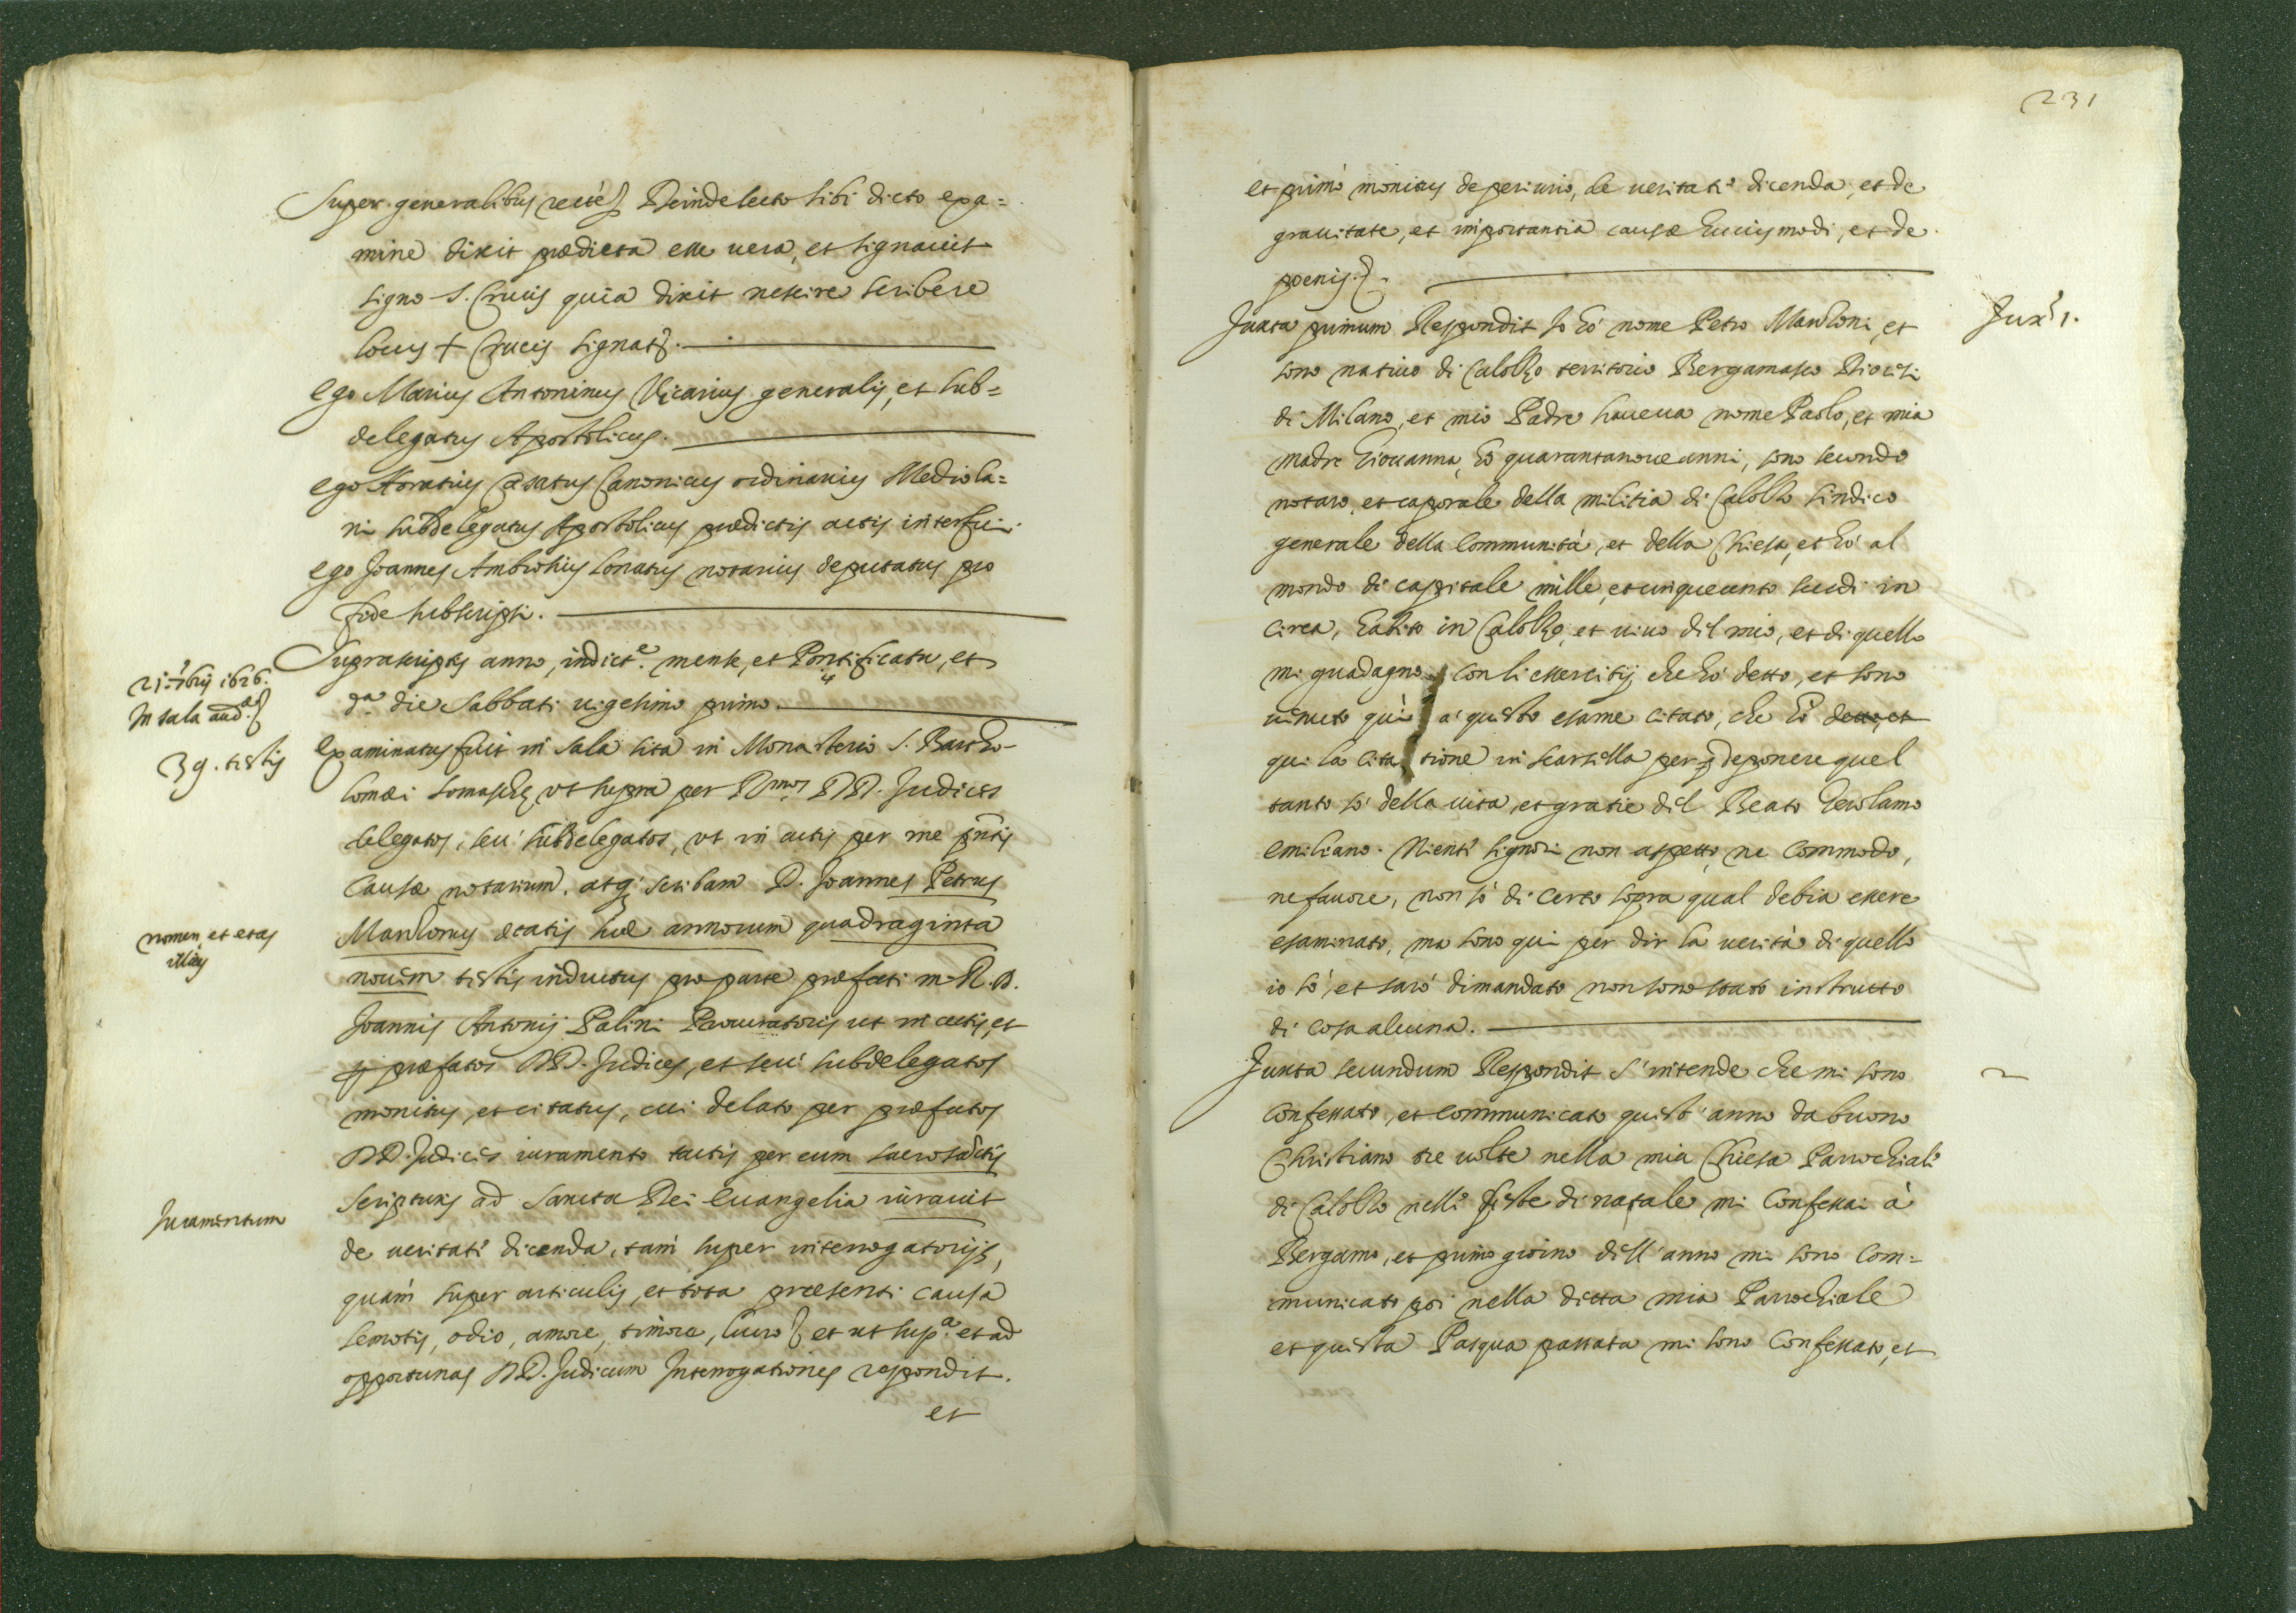 Super generalibus recte Deinde lecto sibi dicto exa=
mine dixit prædicta esse uera, et signauit
signo S. Crucis quia dixit nescire scribere
locus + Crucis signat.
Ego Marius Antoninus Vicarius generalis, et sub=
delegatus Apostolicus.
Ego Horatius Casatus Canonicus ordinarius Mediola=
ni subdelegatus Apostolicus prædictis actis interfui.
Ego Joannes Ambrosius Lonatus notarius deputatus pro
fide subscripsi.
21. 7bris 1626.
In sala aud.
Suprascriptis anno, indict.e mense, et Pontificatu, et
da. die Sabbati uigesimo primo.
39. testis
Examinatus fuit in sala sita in Monasterio S. Bartho-
lomæi Somaschæ, ut supra per DD. Judices
delegatos, seu subdelegatos, ut in actis per me pntis
causæ notarium, atq; scribam D. Joannes Petrus
nomen, et etas
illius
Manzonius ætatis suæ annorum quadraginta
nouem testis inductus pro parte præfati m. R. D.
Joannis Antonij Palini Procuratoris ut in actis, et
p præfatos DD. Judices, et seu subdelegatos
monitus, et citatus, cui delato per præfatos
DD. Judices iuramento tactis per eum sacrosactis
Juramentum
scripturis ad sancta Dei euangelia iurauit
de ueritate dicenda, tam super interrogatorijs,
quàm super articulis, et tota præsenti causa
semotis, odio, amore, timore, lucro et ut sup.a et ad
opportunas DD. Judicum Interrogationes respondit.
et
231
et primò monitus de periurio, de ueritate dicenda, et de
grauitate, et importantia causæ huiusmodi, et de
poenis.
Jux. 1.
Juxta primum Respondit Io hò nome Petro Manzoni, et
sono natiuo di Calolzo territorio Bergamasco Diocesi
di Milano, et mio Padre haueua nome Paolo, et mia
madre Giouanna, hò quarantanoue anni, sono secondo
notaro, et caporale della militia di Calolzo sindico
generale della Communità, et della Chiesa, et hò al
mondo di capitale mille, et cinquecento scudi in
circa, habito in Calolzo, et uiuo del mio, et di quello
mi guadagno con li essercitij che hò detto, et sono
uenuto quì a questo esame citato, che hò detto, et
qui la citatione in scarsella per deponere quel
tanto sò della uita, et gratie del Beato Gerolamo
emiliano. Niente signori non aspetto, ne commodo,
ne fauore, non sò di certo sopra qual debia essere
esaminato, ma sono qui per dir la uerità di quello
io sò, et sarò dimandato non sono stato instrutto
di cosa alcuna.
2
Juxta secundum Respondit S'intende che mi sono
confessato, et communicato quest'anno da buono
Christiano tre uolte nella mia Chiesa Parochiale
di Calolzo nelle feste di natale mi confessai à
Bergamo, et primo giorno dell'anno mi sono com=
municato poi nella detta mia Parochiale
et questa Pasqua passata mi sono confessato, et